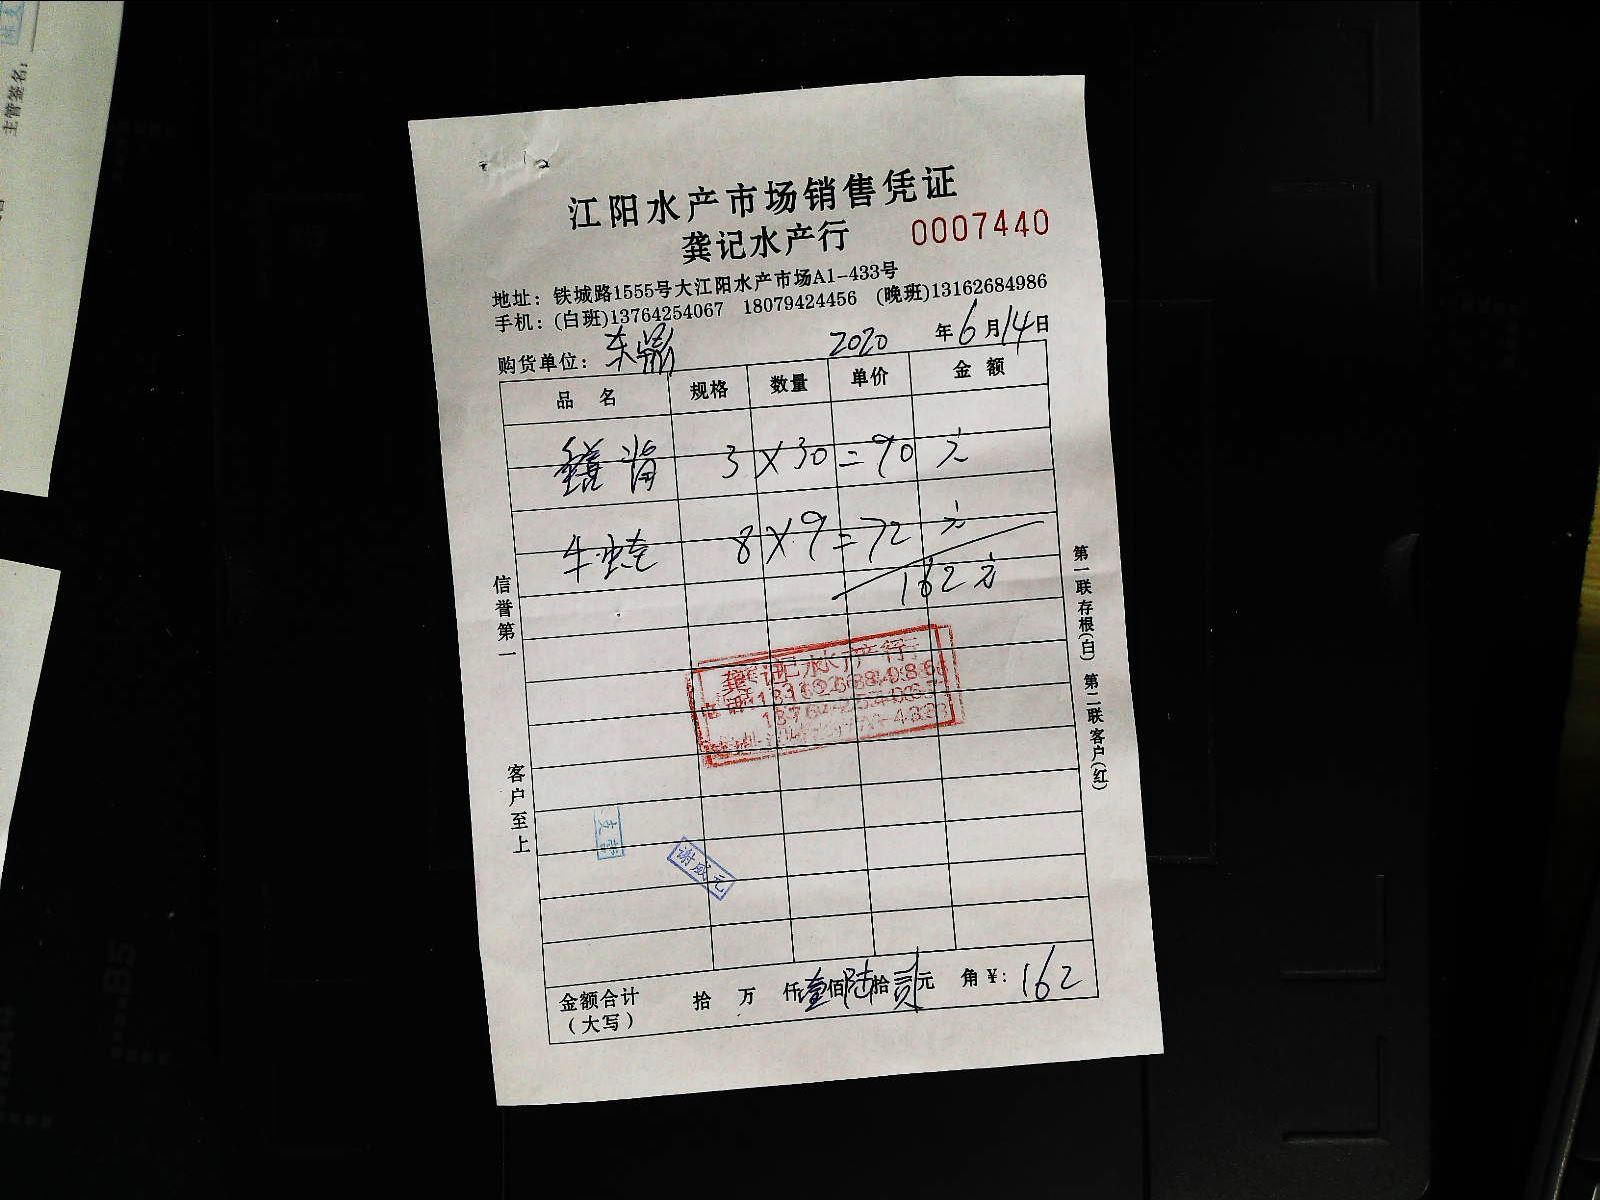 江阳水产市场销售凭证
龚记水产行 0007440
地址：铁城路1555号大江阳水产市场A1-433号
手机：(白班)13764254067 18079424456 (晚班)13162684986
购货单位： 2020 年6月14日
品 名 规格 数量 单价 金 额
3×30=90元
牛蛙 8×9=72元
162元
信誉第一
客户至上
第一联存根(白) 第二联客户(红)
龚记水产行
谢威元
金额合计 拾 万 仟壹佰陆拾贰元 角￥: 162
(大写)
主管签名:
B5